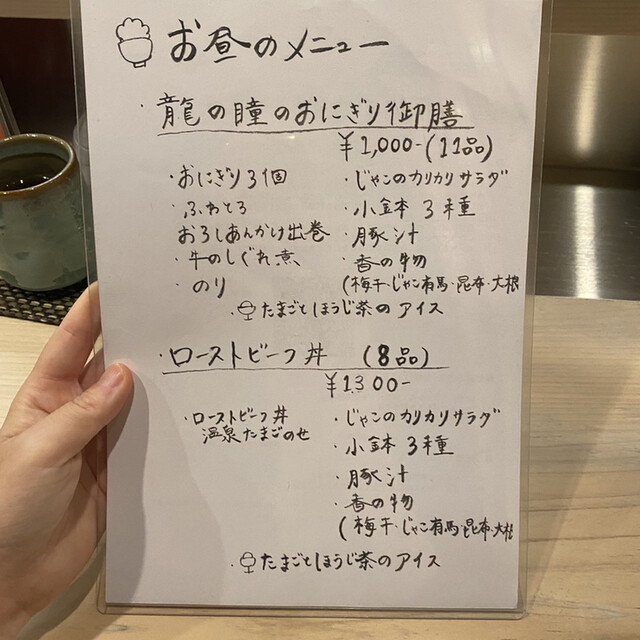 お昼のメニュー
・龍の瞳のおにぎり御膳
¥1,000-(11品)
・おにぎり3個
・ふわとろ
おろしあんかけ出巻
・牛のしぐれ煮
・のり
・じゃこのカリカリサラダ
・小鉢3種
・豚汁
・香の物
(梅干・じゃこ有馬・昆布・大根
・たまごとほうじ茶のアイス
・ローストビーフ丼 (8品)
¥1300-
・ローストビーフ丼
温泉たまごのせ
・じゃこのカリカリサラダ
・小鉢3種
・豚汁
・香の物
(梅干・じゃこ有馬・昆布・大根
・たまごとほうじ茶のアイス